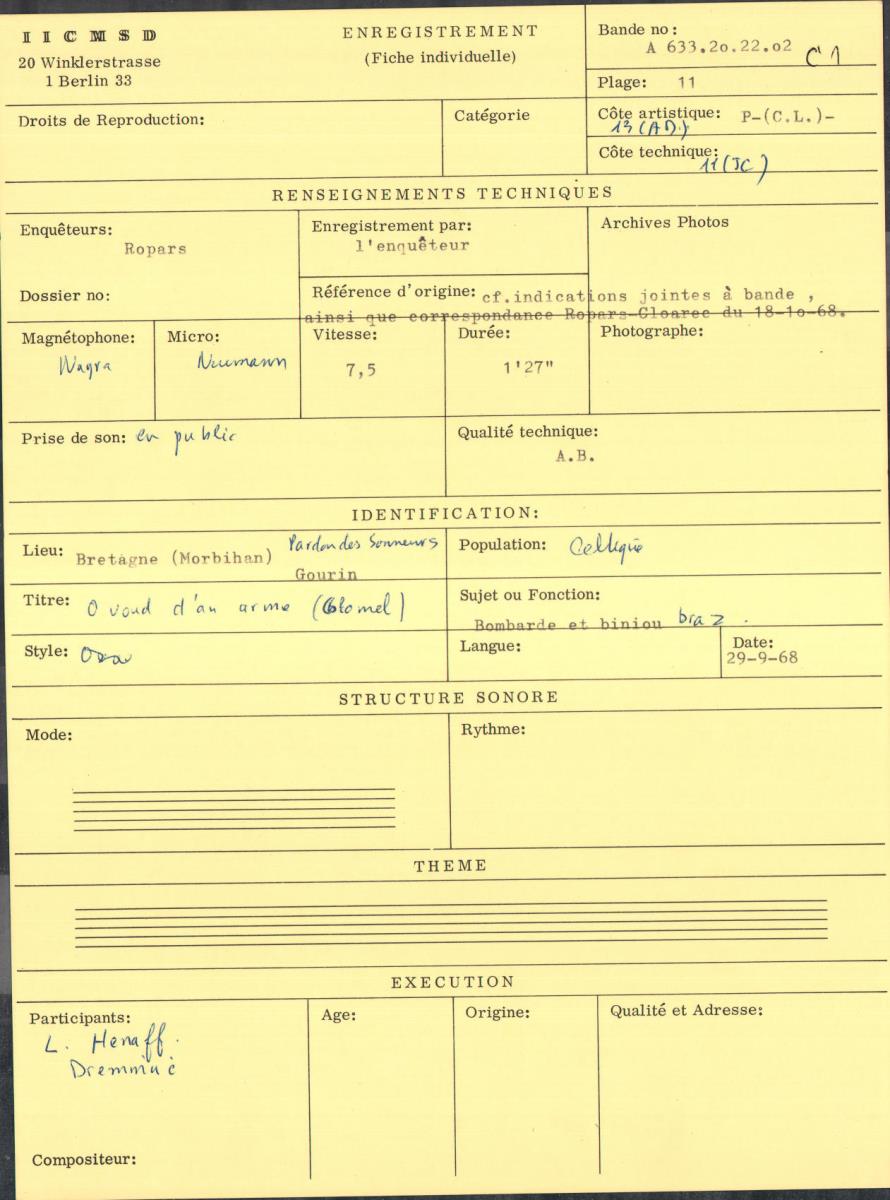 IICMSD
20 Winklerstrasse
1 Berlin 33
ENREGISTREMENT
(Fiche individuelle)
Bande no :
A 633.2o.22.o2 C1
Plage: 11
Droits de Reproduction:
Catégorie
Côte artistique: P-(C.L.)-
13 (AD.)
Côte technique:
11 (JC)
RENSEIGNEMENTS TECHNIQUES
Enquêteurs:
Ropars
Dossier no:
Enregistrement par:
l'enquêteur
Archives Photos
Référence d'origine: cf.indications jointes à bande ,
ainsi que correspondance Ropars-Gloarec du 18-1o-68.
Magnétophone:
Nagra
Micro:
Neumann
Vitesse:
7,5
Durée:
1'27"
Photographe:
Prise de son: en public
Qualité technique:
A.B.
IDENTIFICATION:
Lieu: Bretagne (Morbihan) Pardon des Sonneurs
Gourin
Population: Celtique
Titre: O vond d'an arme (Glomel)
Sujet ou Fonction:
Bombarde et biniou braz.
Style:
Langue:
Date:
29-9-68
STRUCTURE SONORE
Mode:
Rythme:
THEME
EXECUTION
Participants:
L. Henaff.
Age:
Origine:
Qualité et Adresse:
Compositeur: